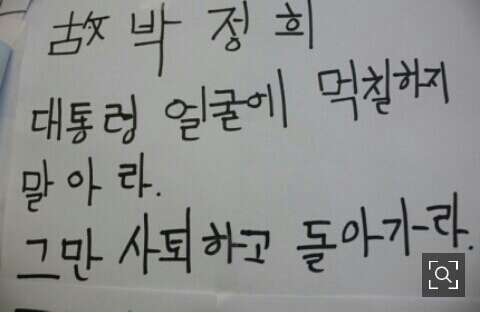 故 박 정 희
대통령 얼굴에 먹칠하지
말 아 라.
그만 사퇴하고 돌아가라.